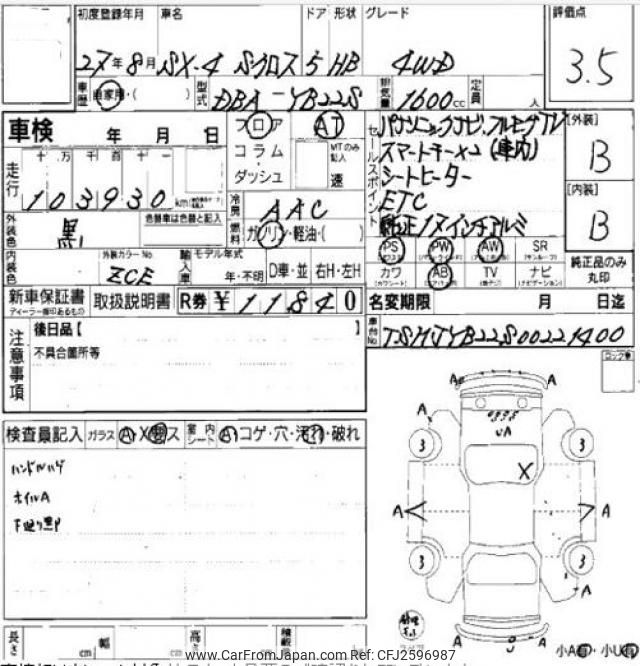 初度登録年月 車名 ドア 形状 グレード 評価点
27年 8月 SX-4 Sクロス 5 HB 4WD 3.5
車歴 自家用・( ) 型式 DBA-YB22S 排気量 1600cc 定員 人
車検 年 月 日
フロア AT
コラム・ダッシュ MTのみ記入 速
セールスポイント
パナソニックナビ、フルセグTV
スマートキー×2(車内)
シートヒーター
ETC
純正17インチアルミ
[外装] B
[内装] B
走行 十 万 千 百 十 一
103930 km
冷房 AAC
燃料 ガソリン・軽油・( )
外装色 黒 色替車は色替と記入
内装色 外装カラーNo ZCE
輸入車 モデル年式 年・不明 D車・並 右H・左H
PS PW AW SR 純正品のみ丸印
カワ AB TV ナビ
新車保証書 取扱説明書 R券 ¥11840
ディーラー捺印あるもの
名変期限 月 日迄
車台No TSMJYB22S00221400
注意事項
後日品【 】
不具合箇所等
ロック車
検査員記入 ガラス A・X・ス 室内シート A・コゲ・穴・汚れ・破れ
ハンドルハゲ
ホイルA
下廻り
A A
A A
UA
3 3
X
A A
3 3
A
A J A
長さ cm 幅 cm 高さ 積載
小A有・小U有
www.CarFromJapan.com Ref: CFJ2596987